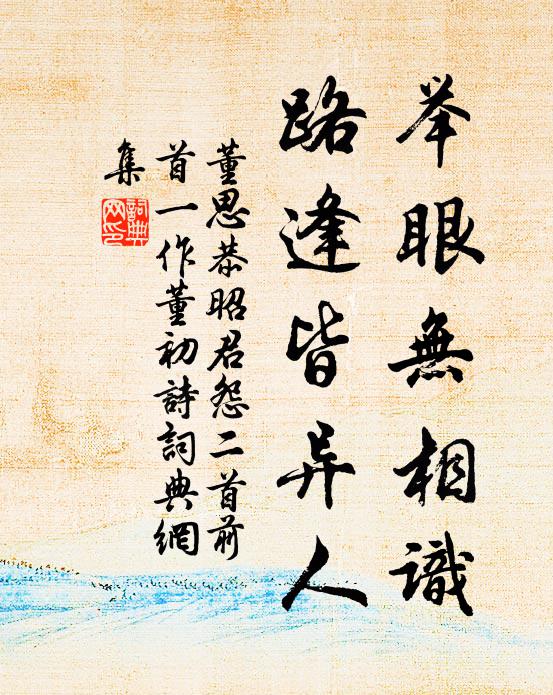 举眼無相識
路逢皆异人
董思恭昭君怨二首前
首一作董初詩詞典網
集
詞典
网印